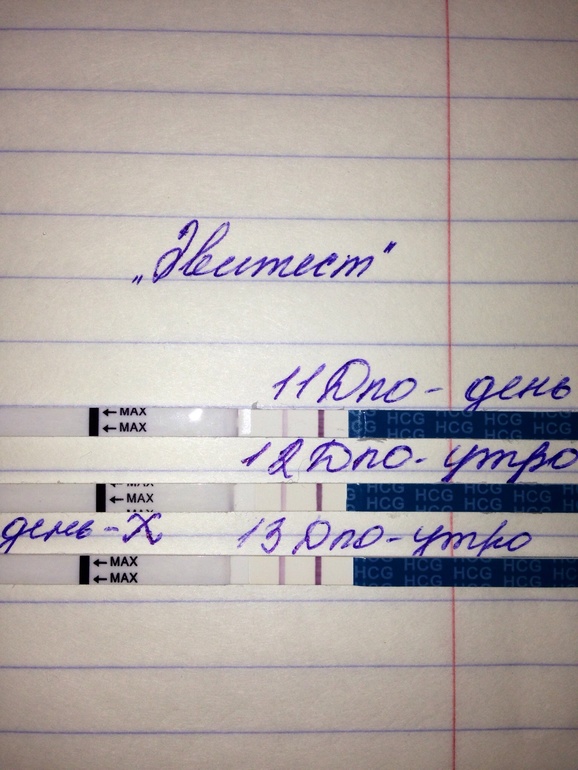 „Эвитест"
11 Дпо - день
← MAX
← MAX
HCG HCG HCG
HCG HCG HCG HCG
12 Дпо - утро
← MAX
← MAX
HCG HCG HCG
день - X
13 Дпо - утро
← MAX
← MAX
HCG HCG HCG
HCG HCG HCG